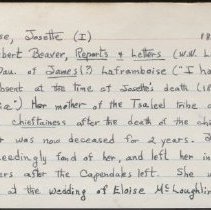 se, Josette (I) 18
bert Beaver, Reports & Letters (W.W. L
Dau. of James(?) Laframboise ("I ha
bsent at the time of Josette's death (18
e") Her mother of the Tsaleel tribe.
chieftainess after the death of the ch
r was now deceased for 2 years.
eedingly fond of her, and left her in
ers after the Capendales left. She w
at the wedding of Eloise McLoughlin